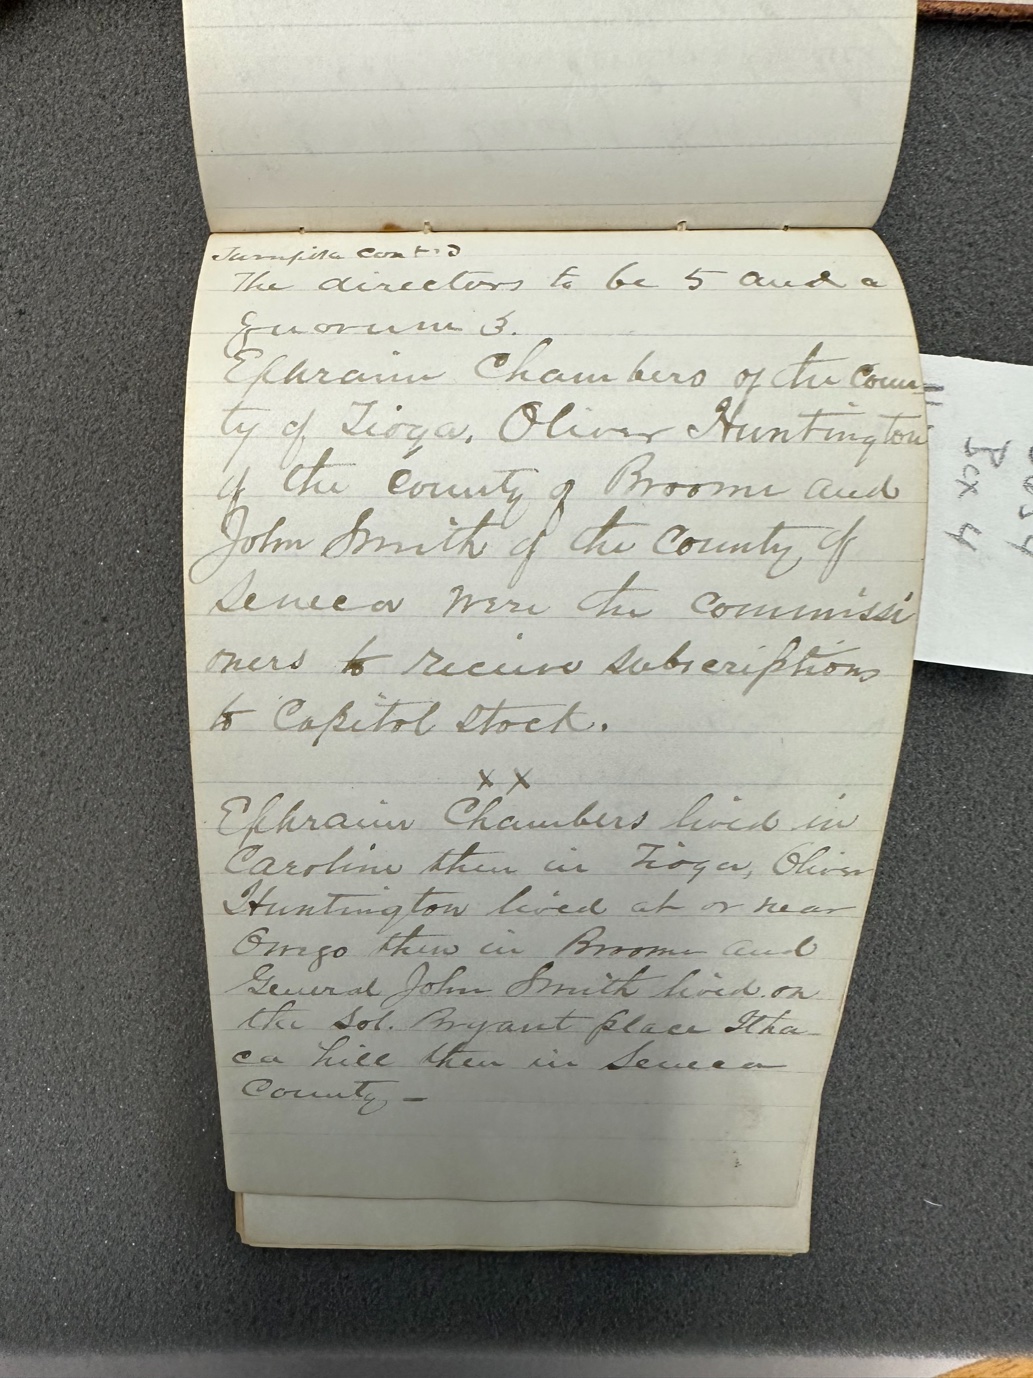 Turnpike cont'd
The directors to be 5 and a
quorum 3.
Ephraim Chambers of the coun-
ty of Tioga, Oliver Huntington
of the county of Broome and
John Smith of the county of
Seneca were the commissi
oners to receive subscriptions
to Capitol stock.
x x
Ephraim Chambers lived in
Caroline then in Tioga, Oliver
Huntington lived at or near
Owego then in Broome and
General John Smith lived on
the Sol. Bryant place Itha-
ca hill then in Seneca
County –
Box 4